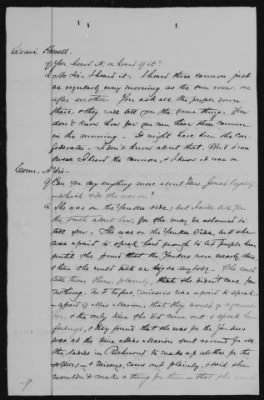 Comr. Howell.
Q You heard it, or heard of it?
A No Sir—I heard it. I heard those cannon just
as regularly every morning as the sun rose, one
after another. You ask all the people down
there, & they will tell you the same thing. You
don't know how far you can hear these cannon
in the morning. It might have been the con-
federates. I don't know about that. But I can
swear I heard the cannon, & I know it was so.
Comr.
Q Can you say anything more about Mrs. Jones' loyalty
—which side she was on?
A She was on the Yankee side,
the truth about how, for she may be ashamed to
tell you. She was on the Yankee side, but she
was afraid to speak loud enough to let people hear
until she found that the Yankees were nearly there,
& then she could talk as big as anybody. She could
tell them then, plainly, that she didn't care for
nothing. As to before, missus was afraid to speak
—afraid of Miss Marion, that they would go against
her, & the only time she did come out & speak her
feelings, & they found that she was for the Yankees
was at the time when Miss Marion sent around for all
the ladies in Richmond to make up clothes for the
soldiers—& missus, came out plainly, & said she
wouldn't make a thing for them—that she